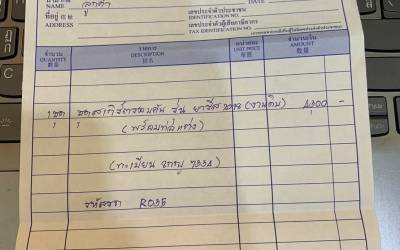 นาม NAME 姓名 ลูกค้า
ที่อยู่ 地址 ADDRESS
DATE
เลขประจำตัวประชาชน IDENTIFICATION NO.
เลขประจำตัวผู้เสียภาษีอากร TAX IDENTIFICATION NO.
จำนวน QUANTITY 數量
รายการ DESCRIPTION 貨名
หน่วยละ UNIT PRICE 單價
จำนวนเงิน AMOUNT
1 ชุด ชุดสเกิร์ตรอบคัน รุ่น ยาริส 2018 (งานดิบ) 4,300 -
(พร้อมท่อ
(ทะเบียน 7334)
R035